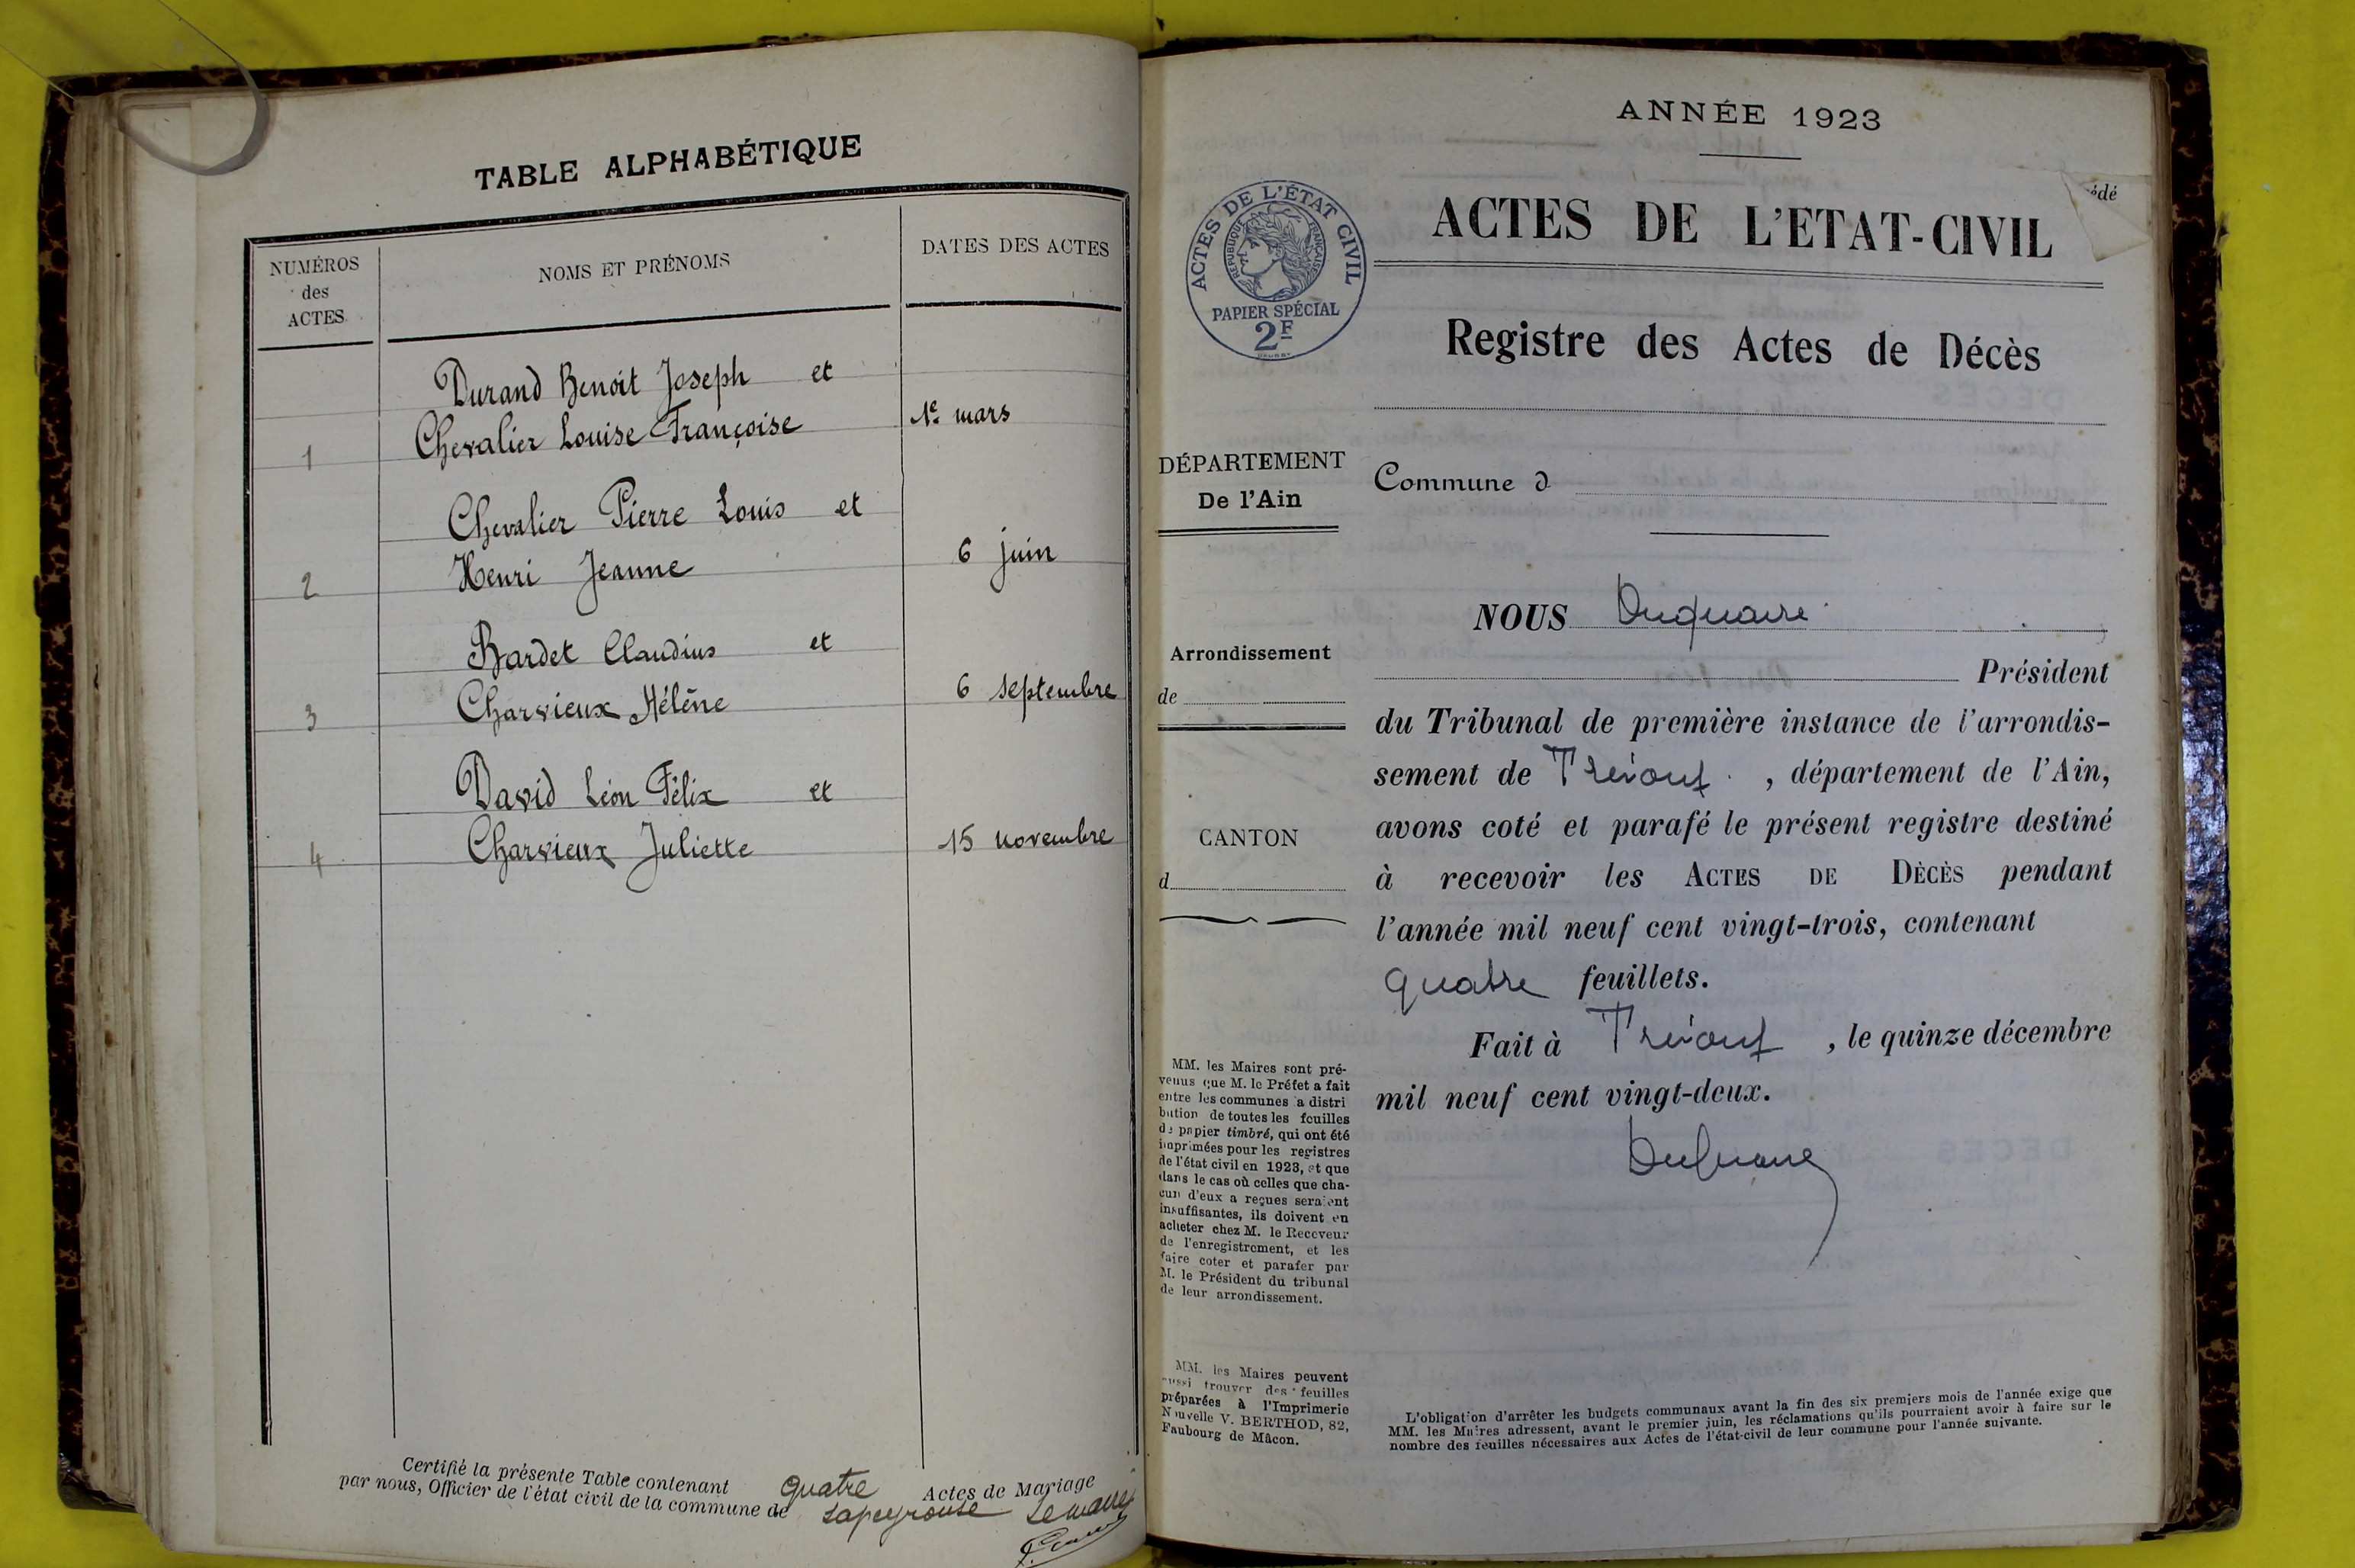 TABLE ALPHABÉTIQUE
NUMÉROS
des
ACTES
NOMS ET PRÉNOMS
DATES DES ACTES
Durand Benoit Joseph et
1 Chevalier Louise Françoise 1e mars
Chevalier Pierre Louis et
2 Henri Jeanne 6 juin
Bardet Claudius et
3 Charvieux Hélène 6 septembre
David Léon Félix et
4 Charvieux Juliette 15 novembre
Certifié la présente Table contenant quatre Actes de Mariage
par nous, Officier de l'état civil de la commune de Lapeyrouse Le maire
ANNÉE 1923
édé
ACTES DE L'ÉTAT CIVIL
RÉPUBLIQUE FRANÇAISE
PAPIER SPÉCIAL
2F
ACTES DE L'ETAT-CIVIL
Registre des Actes de Décès
DÉPARTEMENT
De l'Ain
Commune d
NOUS Duquaire
Arrondissement
de
Président
du Tribunal de première instance de l'arrondis-
sement de Trévoux, département de l'Ain,
avons coté et parafé le présent registre destiné
CANTON
d
à recevoir les ACTES DE DÉCÈS pendant
l'année mil neuf cent vingt-trois, contenant
quatre feuillets.
Fait à Trévoux, le quinze décembre
mil neuf cent vingt-deux.
Duquaire
MM. les Maires sont pré-
venus que M. le Préfet a fait
entre les communes a distri
bution de toutes les feuilles
de papier timbré, qui ont été
imprimées pour les registres
de l'état civil en 1923, et que
dans le cas où celles que cha-
cun d'eux a reçues seraient
insuffisantes, ils doivent en
acheter chez M. le Receveur
de l'enregistrement, et les
faire coter et parafer par
M. le Président du tribunal
de leur arrondissement.
MM. les Maires peuvent
aussi trouver des feuilles
préparées à l'Imprimerie
Nouvelle V. BERTHOD, 82,
Faubourg de Mâcon.
L'obligation d'arrêter les budgets communaux avant la fin des six premiers mois de l'année exige que
MM. les Maires adressent, avant le premier juin, les réclamations qu'ils pourraient avoir à faire sur le
nombre des feuilles nécessaires aux Actes de l'état-civil de leur commune pour l'année suivante.